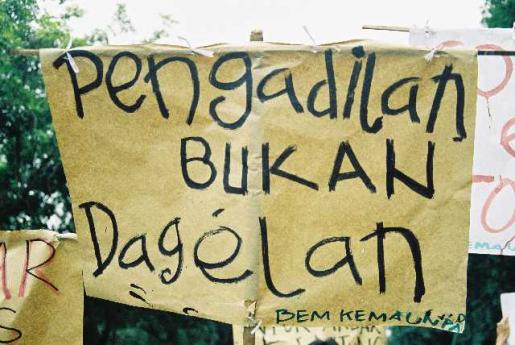 Pengadilan
BUKAN
Dagélan
BEM KEMAUNPAD
AR
S